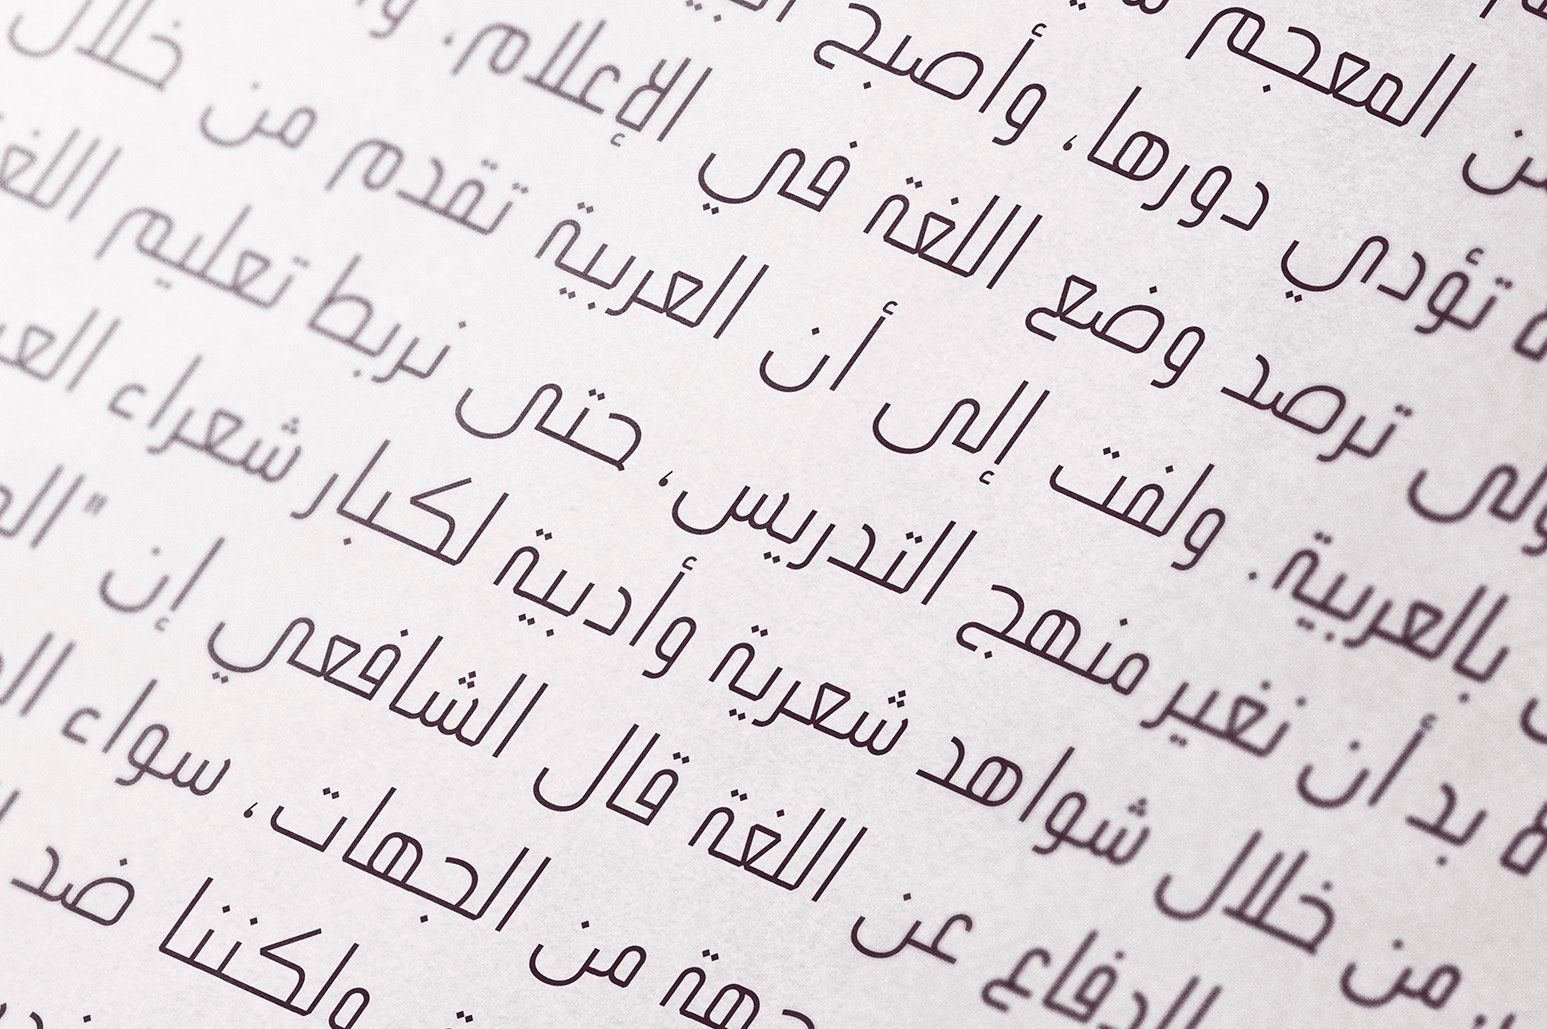 المعجم
تؤدي دورها، وأصبح
ترصد وضع اللغة في الإعلام،
بالعربية. ولفت إلى أن العربية تقدم من خلال
لا بد أن نغير منهج التدريس، حتى نربط تعليم
من خلال شواهد شعرية وأدبية لكبار شعراء
الدفاع عن اللغة قال الشافعي إن
من الجهات، سواء
ولكننا ضد